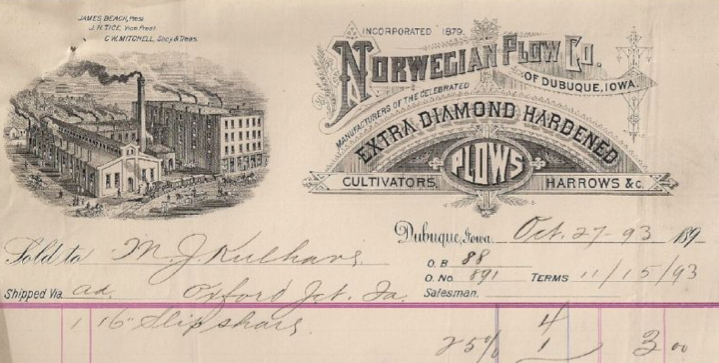 JAMES BEACH, Prest.
J. H. TICE, Vice Prest.
C. W. MITCHELL, Secy. & Treas.
INCORPORATED 1879.
NORWEGIAN PLOW CO.
OF DUBUQUE, IOWA.
MANUFACTURERS OF THE CELEBRATED
EXTRA DIAMOND HARDENED
PLOWS
CULTIVATORS, HARROWS &c.
Dubuque, Iowa. Oct. 27-93 189
Sold to M. J. Kulhavy
O. B. 88
O. No. 891 TERMS 11/15/93
Shipped Via ad. Oxford Jct. Ia. Salesman.
1 16" Slip share 4
25% 1 3 00